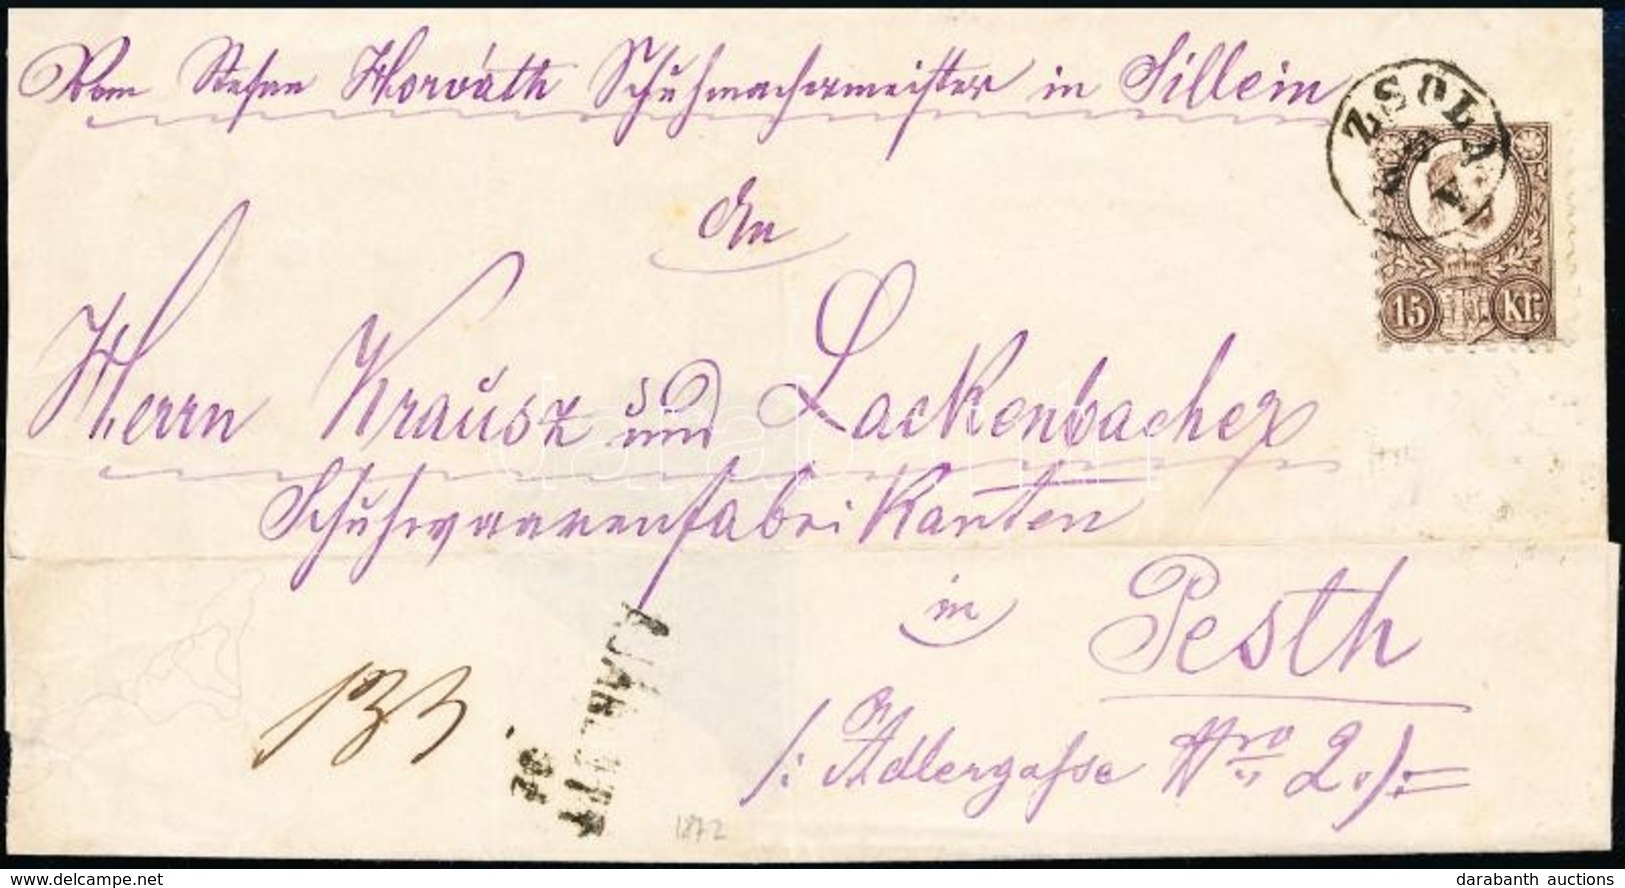 Vom Stefan Horváth Schuhmachermeister in Sillein
ZSOLNA
An
15 Kr.
Herrn Krausz und Lackenbacher
darabanth
Schuhwaarenfabrikanten
in Pesth
AJÁNLOTT
133
/: Adlergasse Nro 2. /:
1872
delcampe.net
darabanth auctions